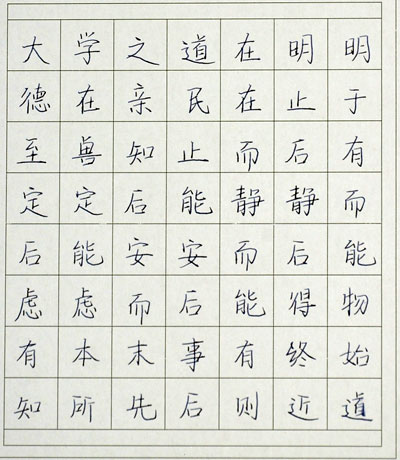 大学之道在明明
德在亲民在止于
至兽知止而后有
定定后能静静而
后能安安而后能
虑虑而后能得物
有本末事有终始
知所先后则近道